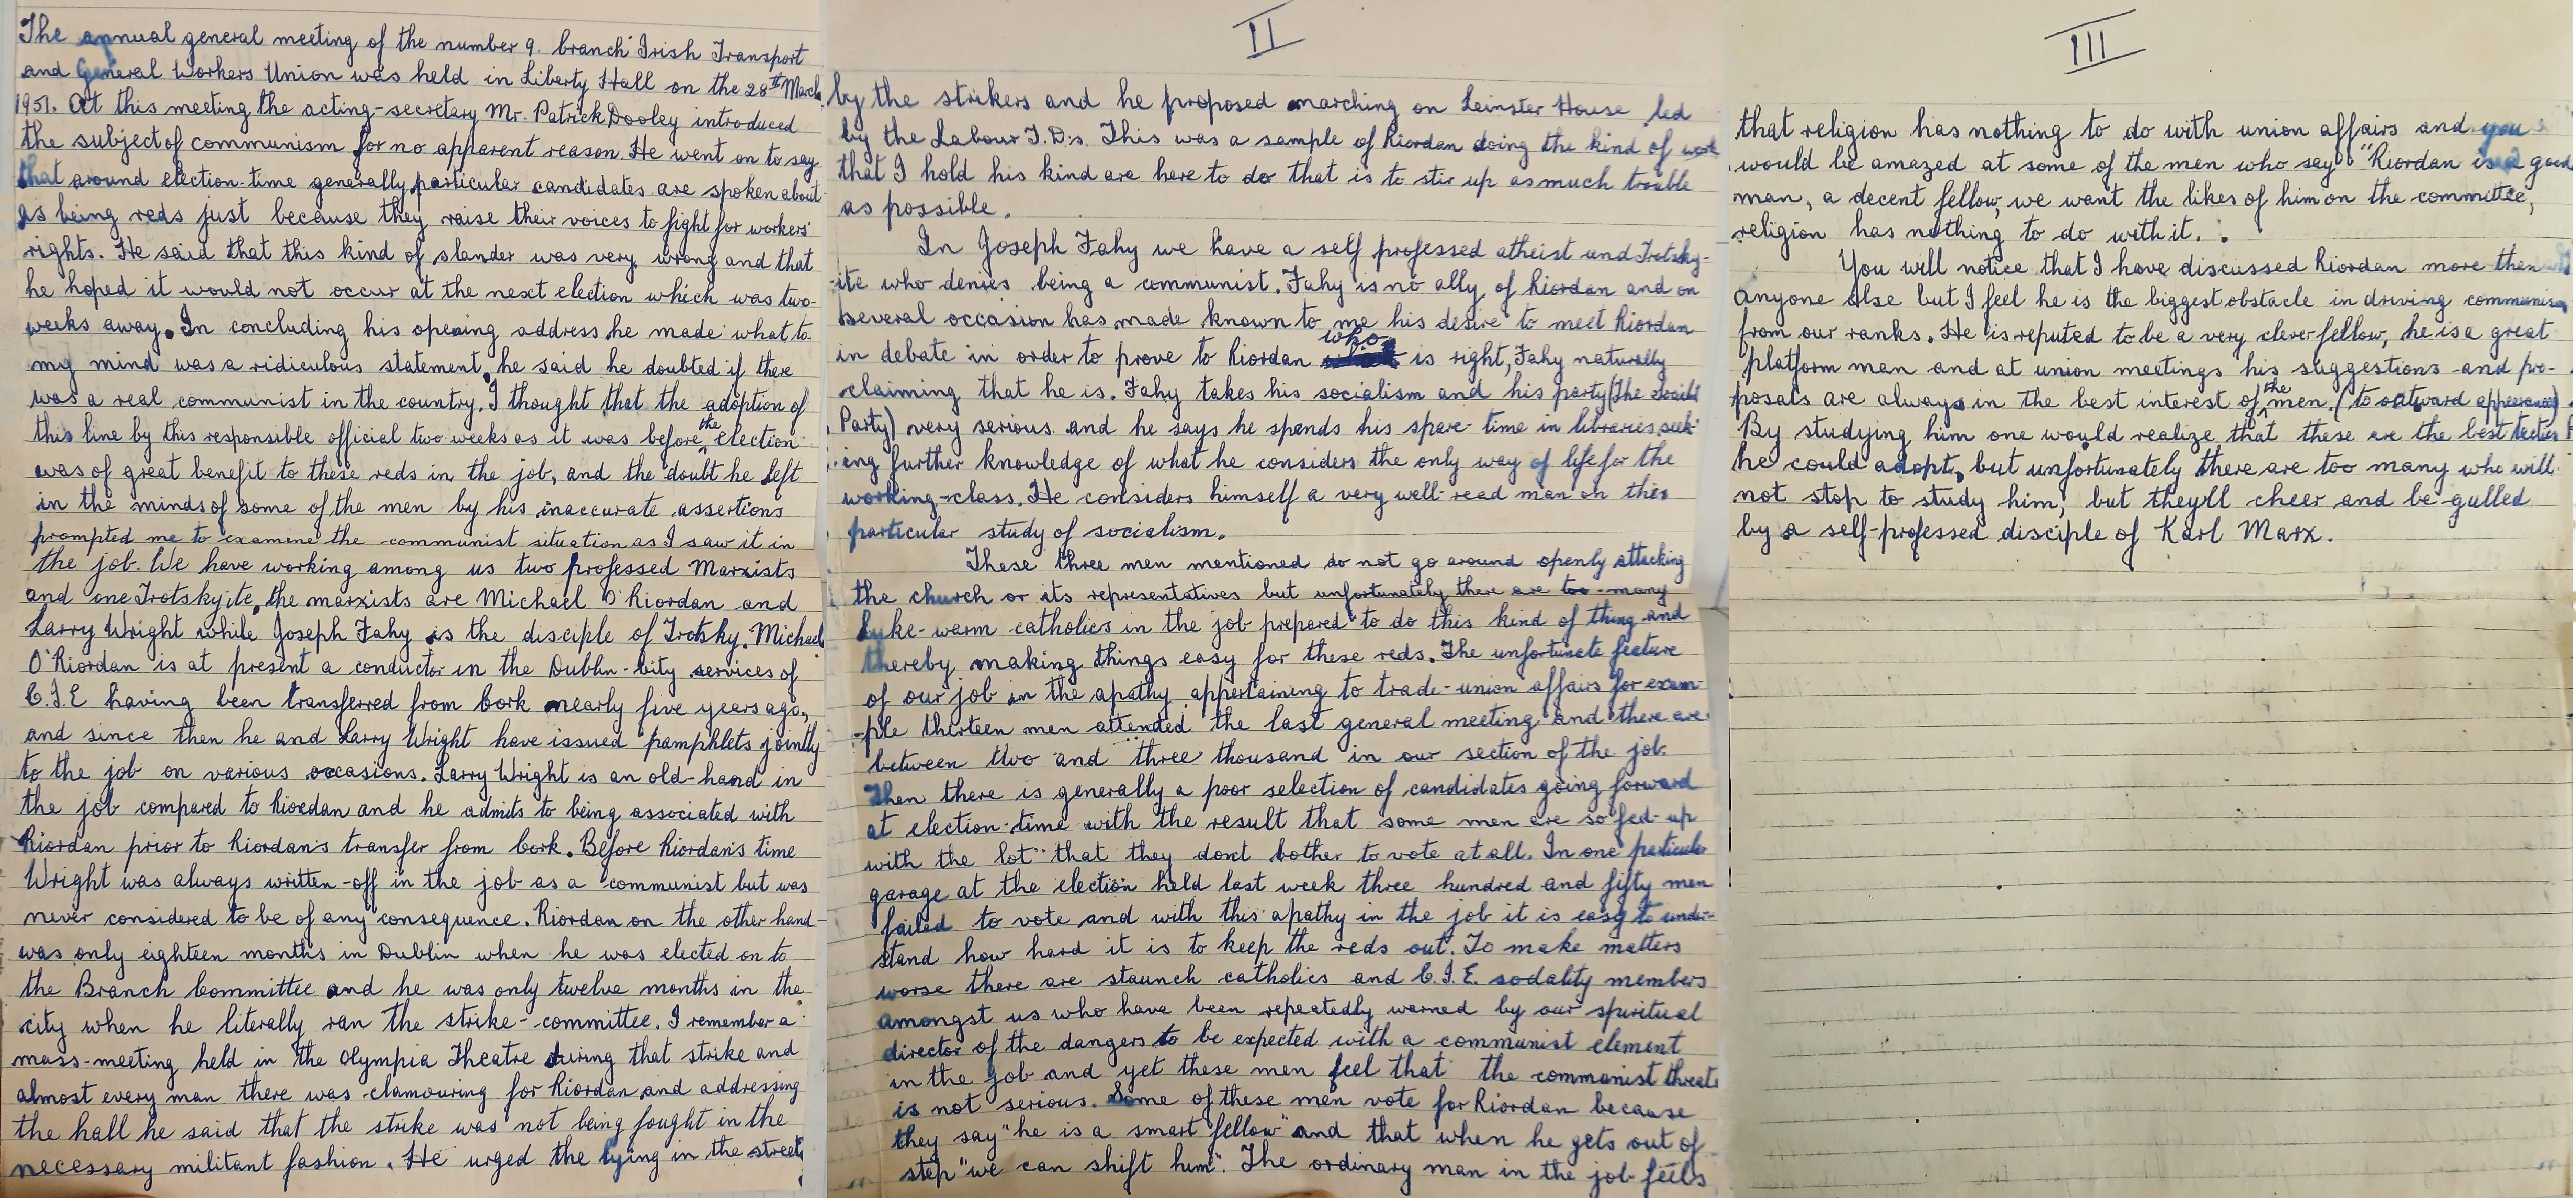 The annual general meeting of the number 9. branch Irish Transport
and General Workers Union was held in Liberty Hall on the 28th March
1951. At this meeting the acting-secretary Mr. Patrick Dooley introduced
the subject of communism for no apparent reason. He went on to say
that around election-time generally particular candidates are spoken about
as being reds just because they raise their voices to fight for workers'
rights. He said that this kind of slander was very wrong and that
he hoped it would not occur at the next election which was two-
weeks away. In concluding his opening address he made what to
my mind was a ridiculous statement, he said he doubted if there
was a real communist in the country. I thought that the adoption of
this line by this responsible official two weeks as it was before the election
was of great benefit to these reds in the job, and the doubt he left
in the minds of some of the men by his inaccurate assertions
prompted me to examine the communist situation as I saw it in
the job. We have working among us two professed Marxists
and one Trotskyite, the marxists are Michael O'Riordan and
Larry Wright while Joseph Fahy is the disciple of Trotsky. Michael
O'Riordan is at present a conductor in the Dublin-City services of
C.I.E having been transferred from Cork nearly five years ago,
and since then he and Larry Wright have issued pamphlets jointly
to the job on various occasions. Larry Wright is an old-hand in
the job compared to Riordan and he admits to being associated with
Riordan prior to Riordan's transfer from Cork. Before Riordan's time
Wright was always written-off in the job as a communist but was
never considered to be of any consequence. Riordan on the other hand
was only eighteen months in Dublin when he was elected on to
the Branch Committee and he was only twelve months in the
city when he literally ran the strike-committee. I remember a
mass-meeting held in the Olympia Theatre during that strike and
almost every man there was clamouring for Riordan and addressing
the hall he said that the strike was not being fought in the
necessary militant fashion. He urged the lying in the streets
II
by the strikers and he proposed marching on Leinster House led
by the Labour T.D's. This was a sample of Riordan doing the kind of work
that I hold his kind are here to do that is to stir up as much trouble
as possible.
In Joseph Fahy we have a self professed atheist and Trotsky-
-ite who denies being a communist. Fahy is no ally of Riordan and on
several occasion has made known to me his desire to meet Riordan
in debate in order to prove to Riordan who is right, Fahy naturally
claiming that he is. Fahy takes his socialism and his party (The Socialist
Party) very serious and he says he spends his spare-time in libraries seek-
ing further knowledge of what he considers the only way of life for the
working-class. He considers himself a very well-read man on this
particular study of socialism.
These three men mentioned do not go around openly attacking
the church or its representatives but unfortunately there are too-many
luke-warm catholics in the job prepared to do this kind of thing and
thereby making things easy for these reds. The unfortunate feature
of our job in the apathy appertaining to trade-union affairs for exam-
-ple thirteen men attended the last general meeting and there are
between two and three thousand in our section of the job.
Then there is generally a poor selection of candidates going forward
at election-time with the result that some men are so fed-up
with the lot that they don't bother to vote at all. In one particular
garage at the election held last week three hundred and fifty men
failed to vote and with this apathy in the job it is easy to under-
stand how hard it is to keep the reds out. To make matters
worse there are staunch catholics and C.I.E. sodality members
amongst us who have been repeatedly warned by our spiritual
director of the dangers to be expected with a communist element
in the job and yet these men feel that the communist threat
is not serious. Some of these men vote for Riordan because
they say "he is a smart fellow" and that when he gets out of
step "we can shift him". The ordinary man in the job feels
III
that religion has nothing to do with union affairs and you
would be amazed at some of the men who say "Riordan is a good
man, a decent fellow, we want the likes of him on the committee,
religion has nothing to do with it.
You will notice that I have discussed Riordan more then
anyone else but I feel he is the biggest obstacle in driving communism
from our ranks. He is reputed to be a very clever fellow, he is a great
platform man and at union meetings his suggestions and pro-
posals are always in the best interest of the men (to outward appearances).
By studying him one would realize that these are the best tactics
he could adopt, but unfortunately there are too many who will
not stop to study him, but they'll cheer and be gulled
by a self-professed disciple of Karl Marx.